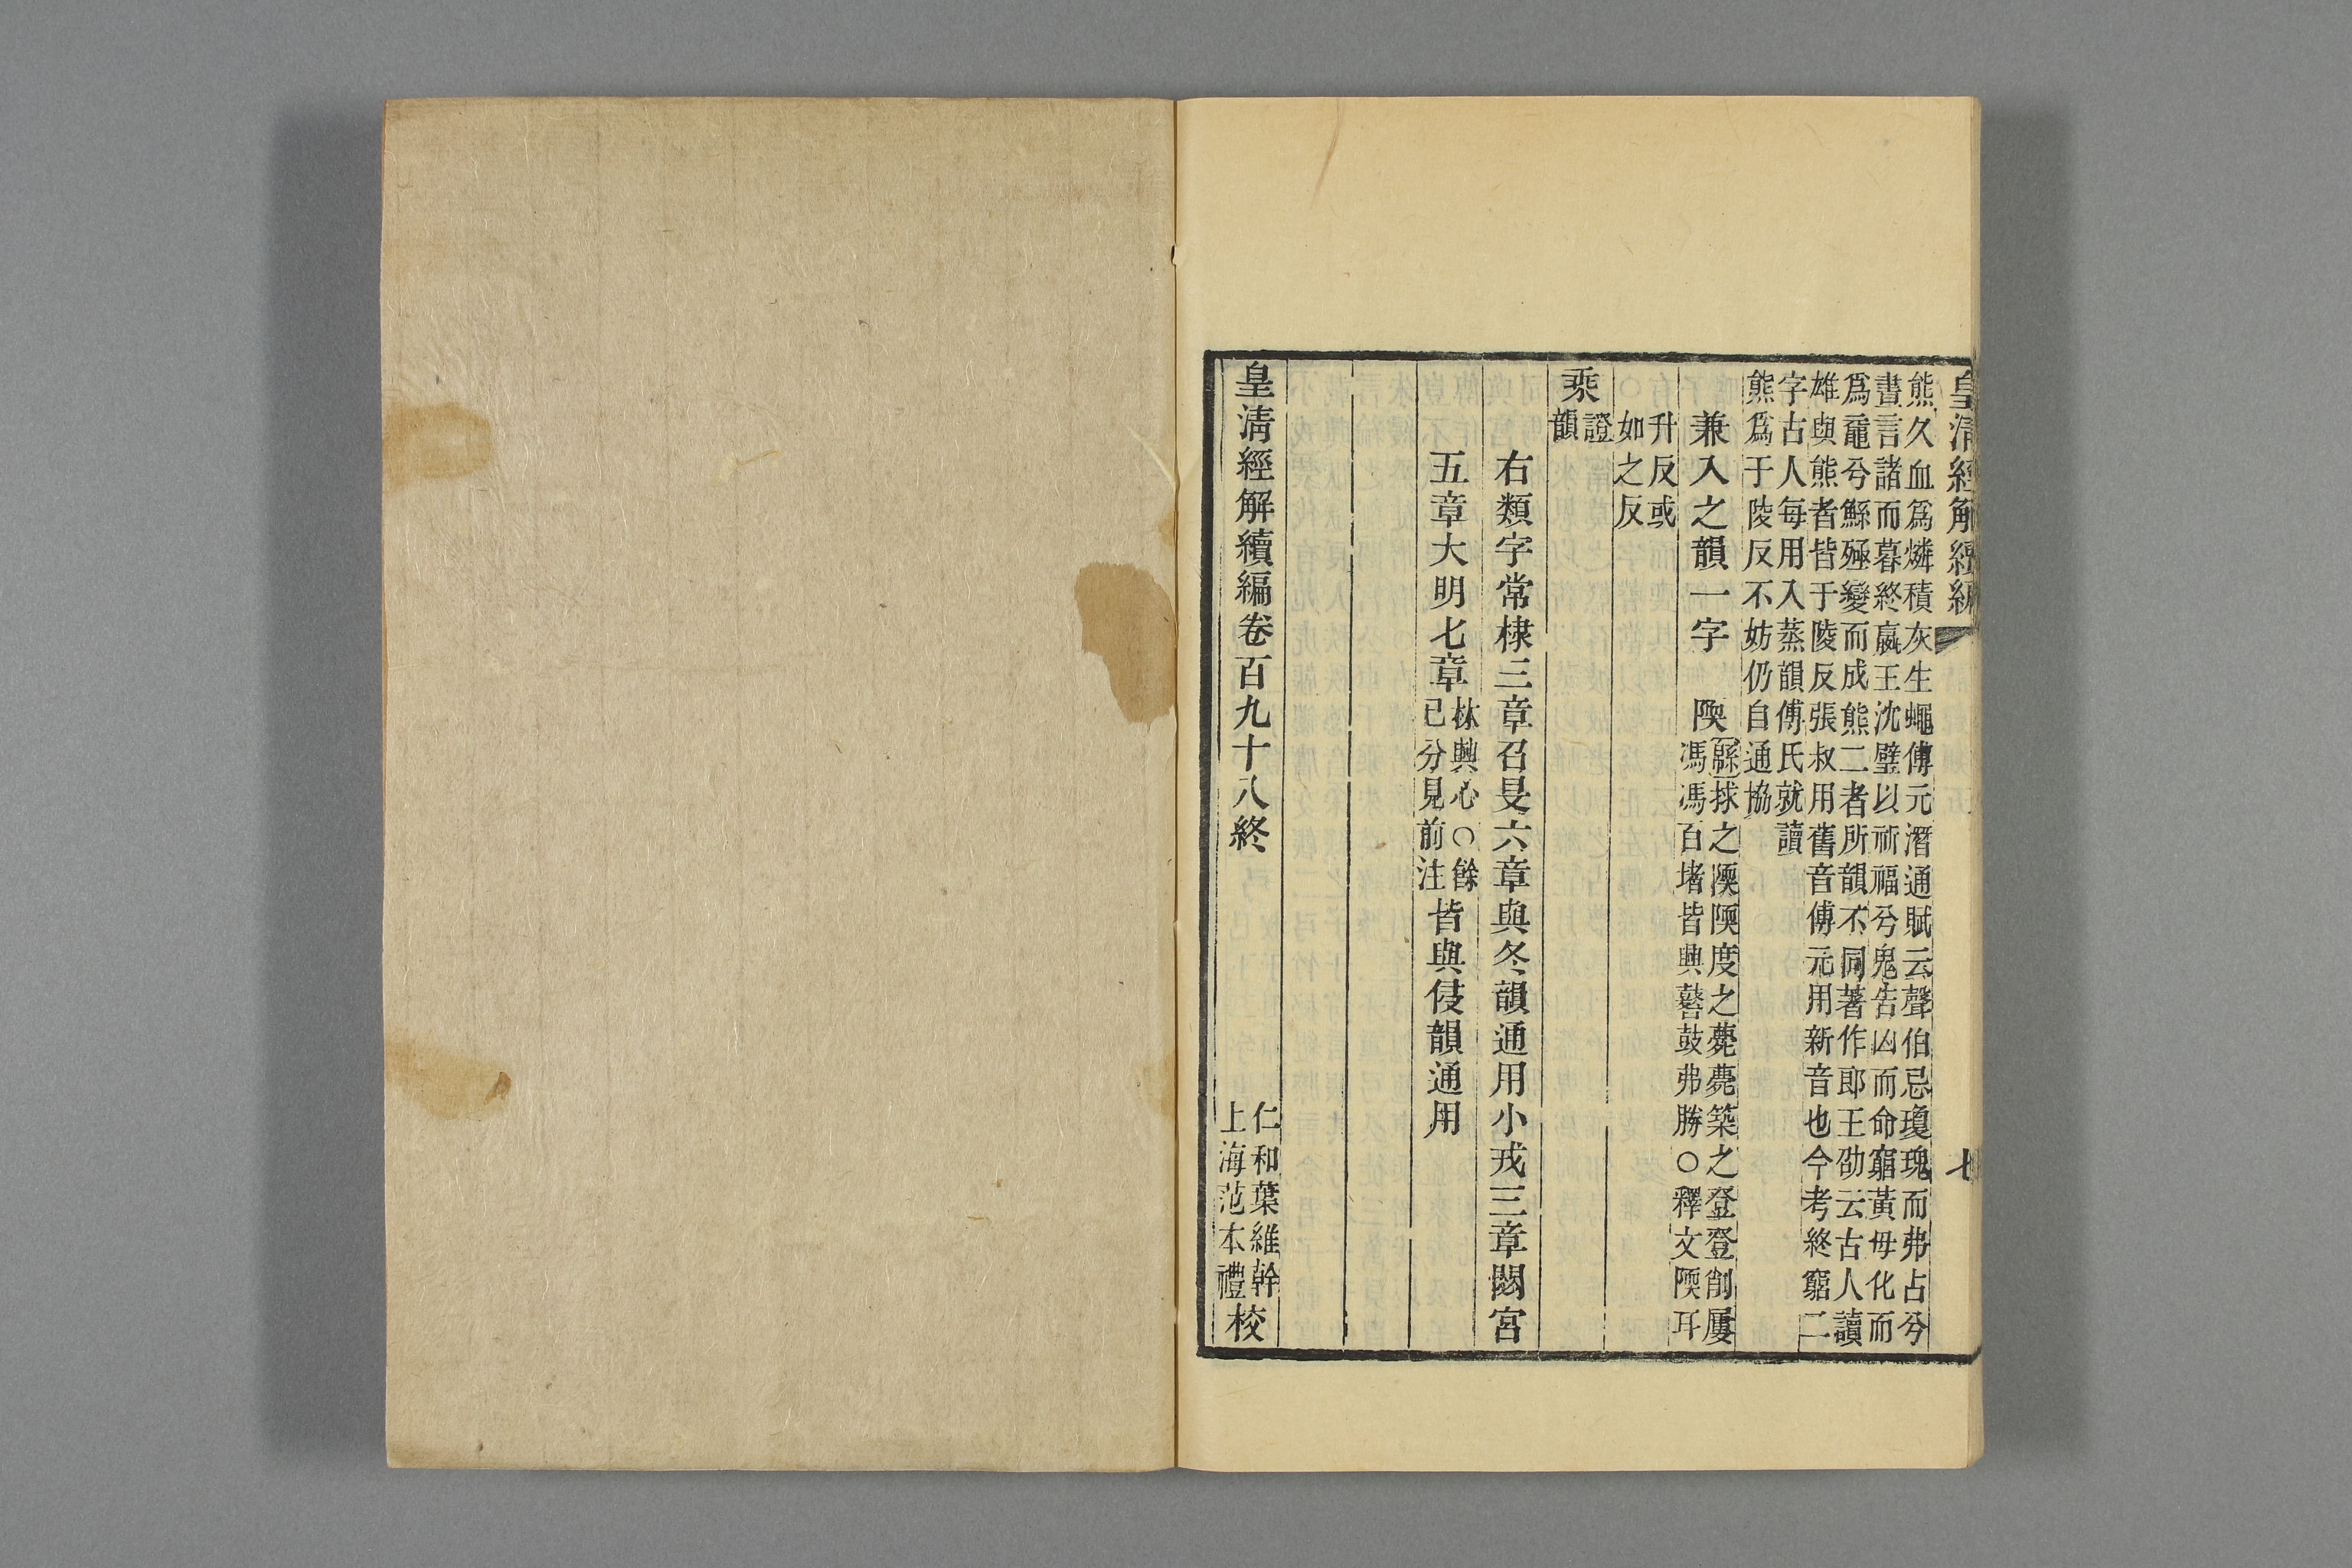 皇淸經解續編
七
熊久血爲燐積灰生蠅傅元潛通賦云聲伯忌瓊瑰而弗占兮
晝言諸而暮終嬴王沈璧以祈福兮鬼告凶而命窮黃母化而
爲黿兮鯀殛變而成熊二者所韻不同著作郎王劭云古人讀
雄與熊者皆于陵反張叔用舊音傅元用新音也今考終窮二
字古人每用入蒸韻傅氏就讀
熊爲于陵反不妨仍自通協
兼入之韻一字　陾緜捄之陾陾度之薨薨築之登登削屢
馮馮百堵皆興鼛鼓弗勝○釋文陾耳
升反或
如之反
乘證
韻
右類字常棣三章召旻六章與冬韻通用小戎三章閟宮
五章大明七章林興心○餘
已分見前注皆與侵韻通用
皇淸經解續編卷百九十八終
仁和葉維幹
上海范本禮校